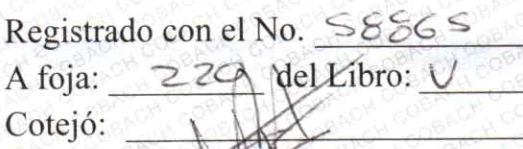 Registrado con el No. 58865
A foja: 229 del Libro: V
Cotejó: